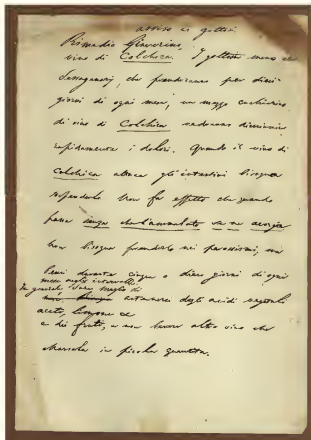 avviso ai gottosi
Rimedio Giaverini,
vino di Colchica. I gottosi meno
che prenderanno per dieci
giorni di ogni mese, un mezzo cucchiarino
di vino di Colchica vedranno diminuire
rapidamente i dolori. Quando il vino di
Colchica attacca gl'intestini bisogna
sospenderlo. Non fa effetto che quando
passa senza che l'ammalato se ne accorga
Non bisogna prenderlo nei parossismi, ma
beni durante cinque o dieci giorni di ogni
mese negli intervalli.
In generale sarà meglio di
astenersi dagli acidi vegetali
aceto, limone ec
e dei frutti, e non bevere altro vino che
Marsala in piccola quantità.